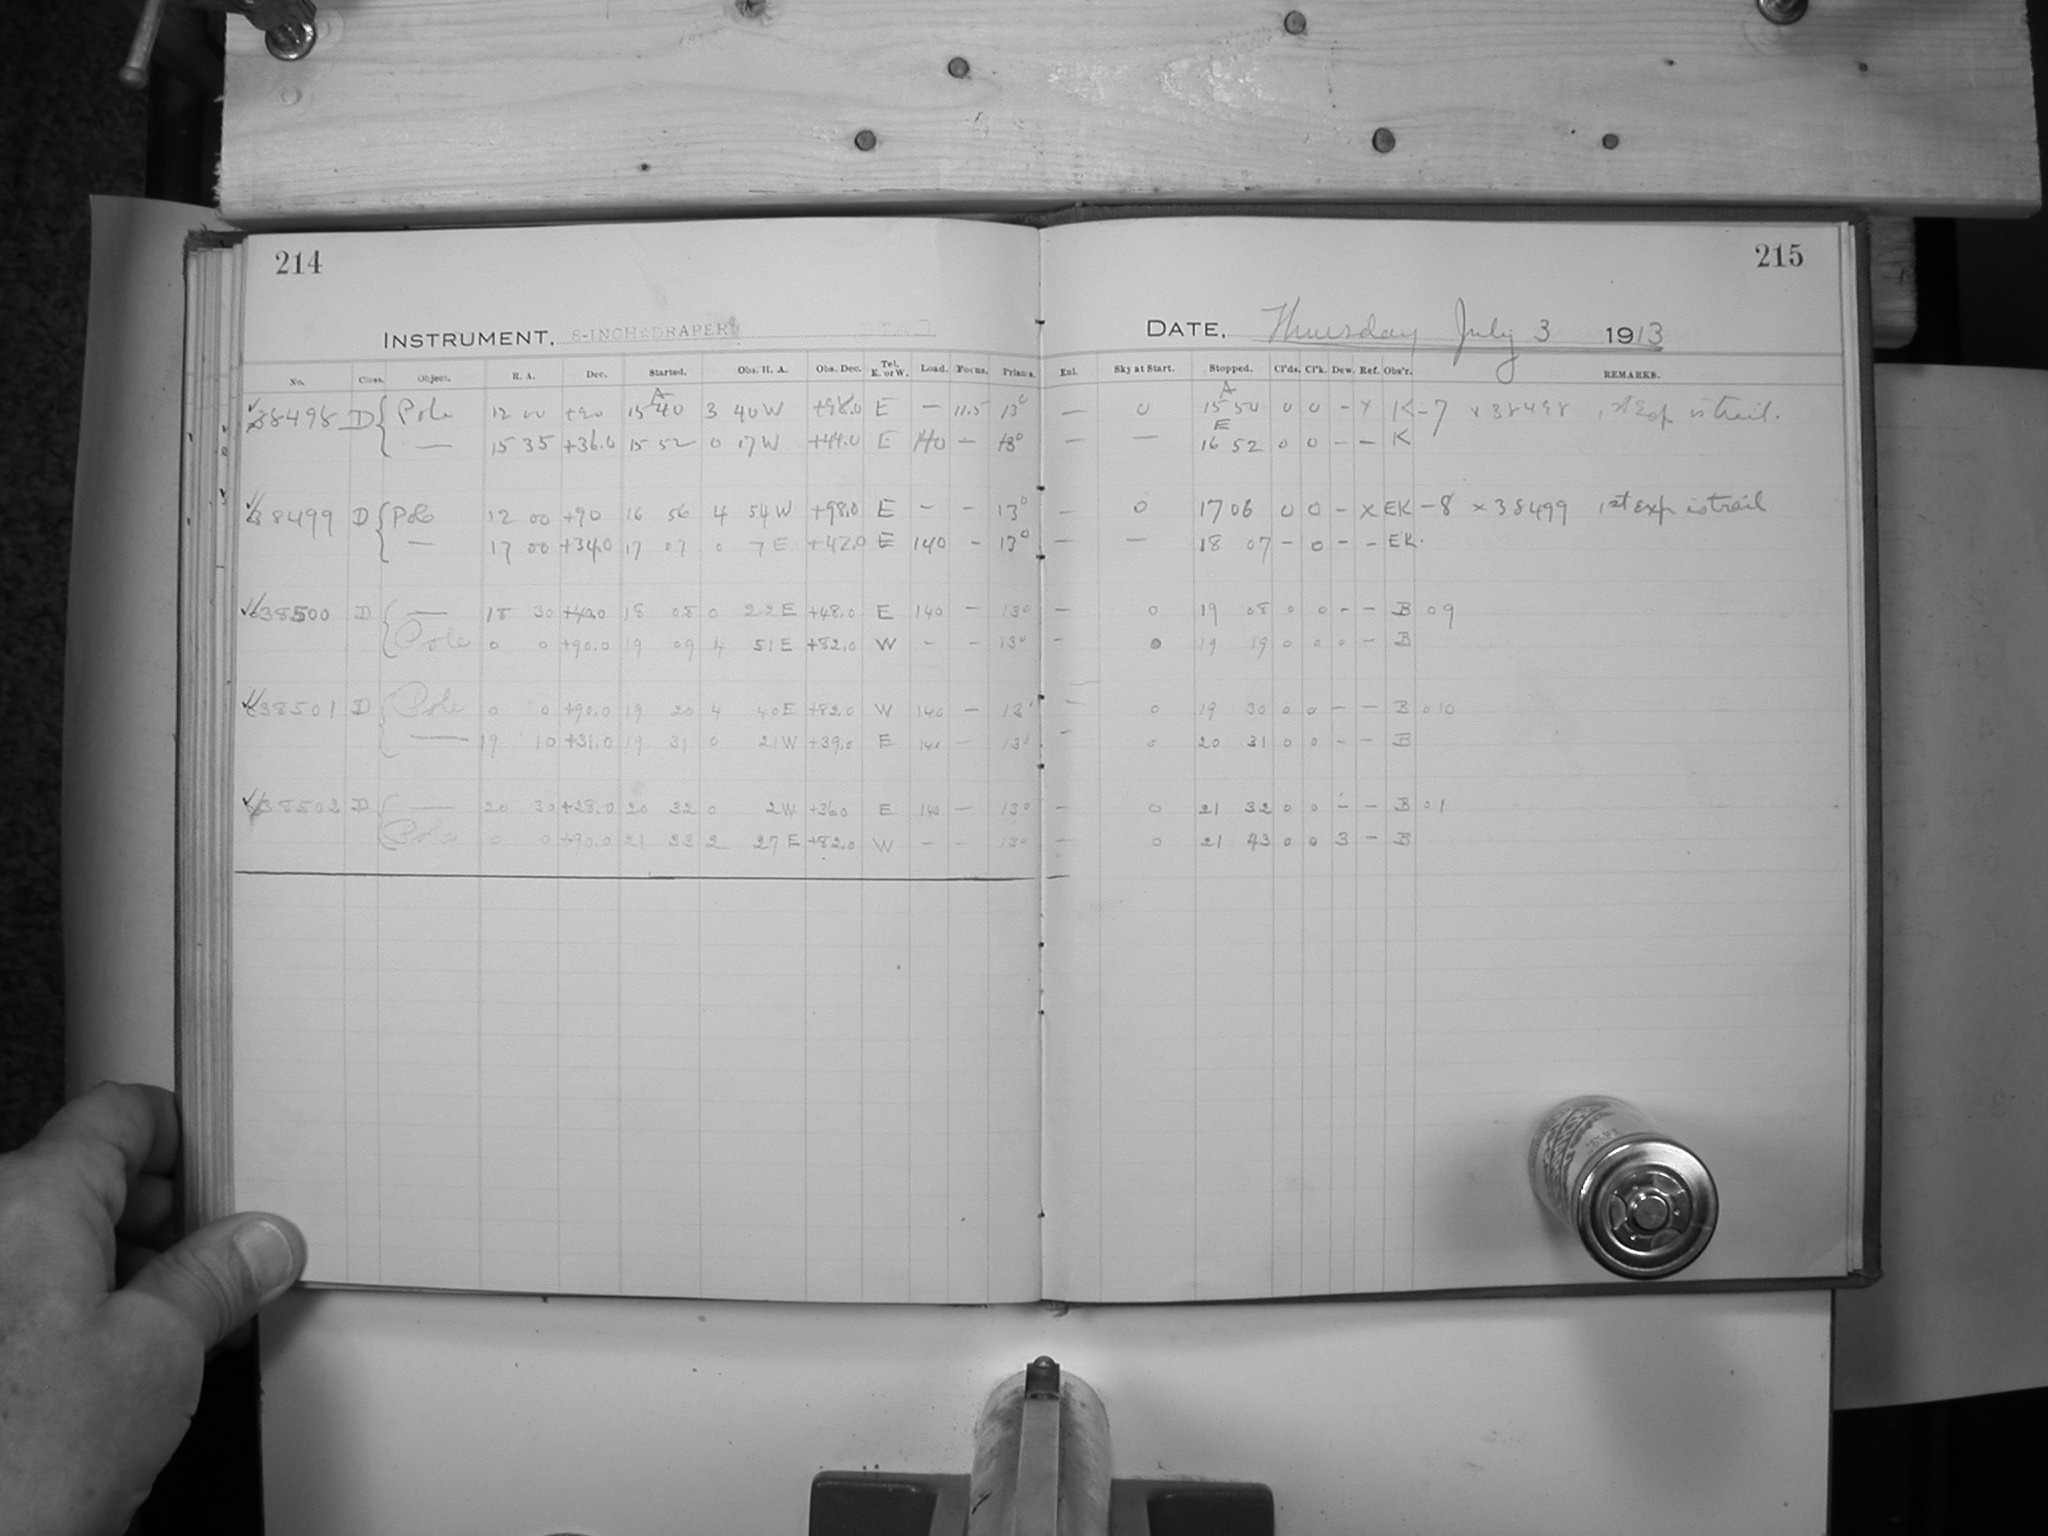 214
215
INSTRUMENT. 8-INCH DRAPER
DATE. Thursday July 3 1913
No. Class. Object. R. A. Dec. Started. Obs. H. A. Obs. Dec. Tel. E. or W. Load. Focus. Prisms. Enl. Sky at Start. Stopped. Cl'ds. Cl'k. Dew. Ref. Obs'r. REMARKS.
A A
38498 D Pole 12 00 +90 15 40 3 40 W +98.0 E — 11.5 13° — 0 15 50 0 0 - x K -7 x 38498 1st Exp is trail.
E
— 15 35 +36.0 15 52 0 17 W +44.0 E 140 — 13° — — 16 52 0 0 — — K
38499 D Pole 12 00 +90 16 56 4 54 W +98.0 E - - 13° — 0 17 06 0 0 - x EK -8 x 38499 1st exp is trail
— 17 00 +34.0 17 07 0 7 E +42.0 E 140 - 13° — — 18 07 - 0 - - EK.
38500 D — 18 30 +40.0 18 08 0 22 E +48.0 E 140 - 13° — 0 19 08 0 0 - - B 09
Pole 0 0 +90.0 19 09 4 51 E +82.0 W - - 13° - 0 19 19 0 0 0 - B
38501 D Pole 0 0 +90.0 19 20 4 40 E +82.0 W 140 — 13° - 0 19 30 0 0 - - B 010
— 19 10 +31.0 19 31 0 21 W +39.0 E 140 — 13° - 0 20 31 0 0 - - B
38502 D — 20 30 +28.0 20 32 0 2 W +36.0 E 140 — 13° — 0 21 32 0 0 - - B 01
Pole 0 0 +90.0 21 33 2 27 E +82.0 W — — 13° — 0 21 43 0 0 3 - B